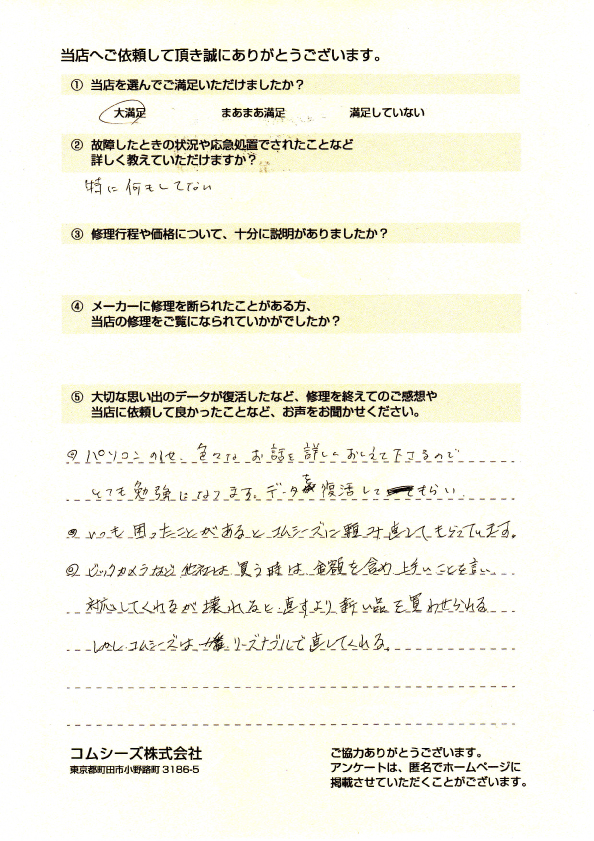 当店へご依頼して頂き誠にありがとうございます。
① 当店を選んでご満足いただけましたか？
大満足 まあまあ満足 満足していない
② 故障したときの状況や応急処置でされたことなど
詳しく教えていただけますか？
特に何もしてない
③ 修理行程や価格について、十分に説明がありましたか？
④ メーカーに修理を断られたことがある方、
当店の修理をご覧になられていかがでしたか？
⑤ 大切な思い出のデータが復活したなど、修理を終えてのご感想や
当店に依頼して良かったことなど、お声をお聞かせください。
パソコンの他、色々なお話を詳しくおしえて下さるので
とても勉強になってます。データ 復活して もらい
いつも困ったことがあるとコムシーズに頼み直してもらっています。
ビックカメラなど他社は買う時は金額を含め上手いことを言い
対応してくれるが壊れると直すより新しい品を買わせられる
しかしコムシーズは一番リーズナブルで直してくれる。
コムシーズ株式会社
東京都町田市小野路町 3186-5
ご協力ありがとうございます。
アンケートは、匿名でホームページに
掲載させていただくことがございます。